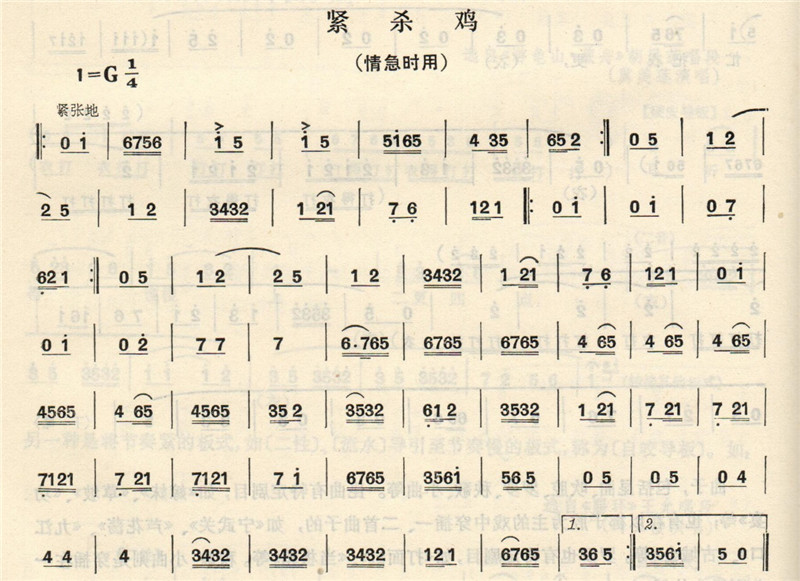 紧杀鸡
1=G 1/4
(情急时用)
紧张地
‖: 0 i | 6756 | i 5 | i 5 | 5165 | 4 35 | 652 :‖ 0 5 | 1 2 |
2 5 | 1 2 | 3432 | 1 21 | 7 6 | 121 ‖: 0 i | 0 i | 0 7 |
621 :‖ 0 5 | 1 2 | 2 5 | 1 2 | 3432 | 1 21 | 7 6 | 121 | 0 i |
0 i | 0 2 | 7 7 | 7 | 6·765 | 6765 | 6765 | 4 65 | 4 65 | 4 65 |
4565 | 4 65 | 4565 | 352 | 3532 | 612 | 3532 | 1 21 | 7 21 | 7 21 |
7121 | 7 21 | 7121 | 7 i | 6765 | 356i | 565 | 0 5 | 0 5 | 0 4 |
4 4 | 4 | 3432 | 3432 | 3432 | 121 | 6765 | 1. 365 :‖ 2. 356i | 5 0 ‖